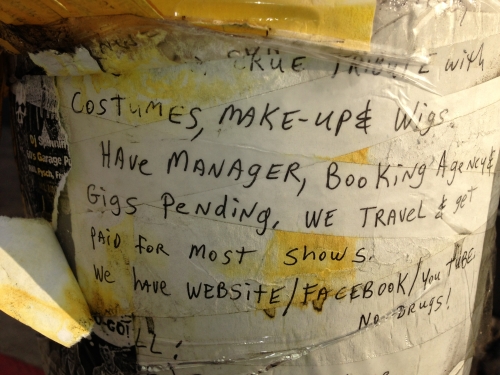 TRIBUTE with
COSTUMES, MAKE-UP & Wigs.
HAVE MANAGER, BOOKING AGENCY &
Gigs Pending. WE TRAVEL & get
PAID FOR MOST SHOWS.
WE HAVE WEBSITE/FACEBOOK/YOU TUBE
NO DRUGS!